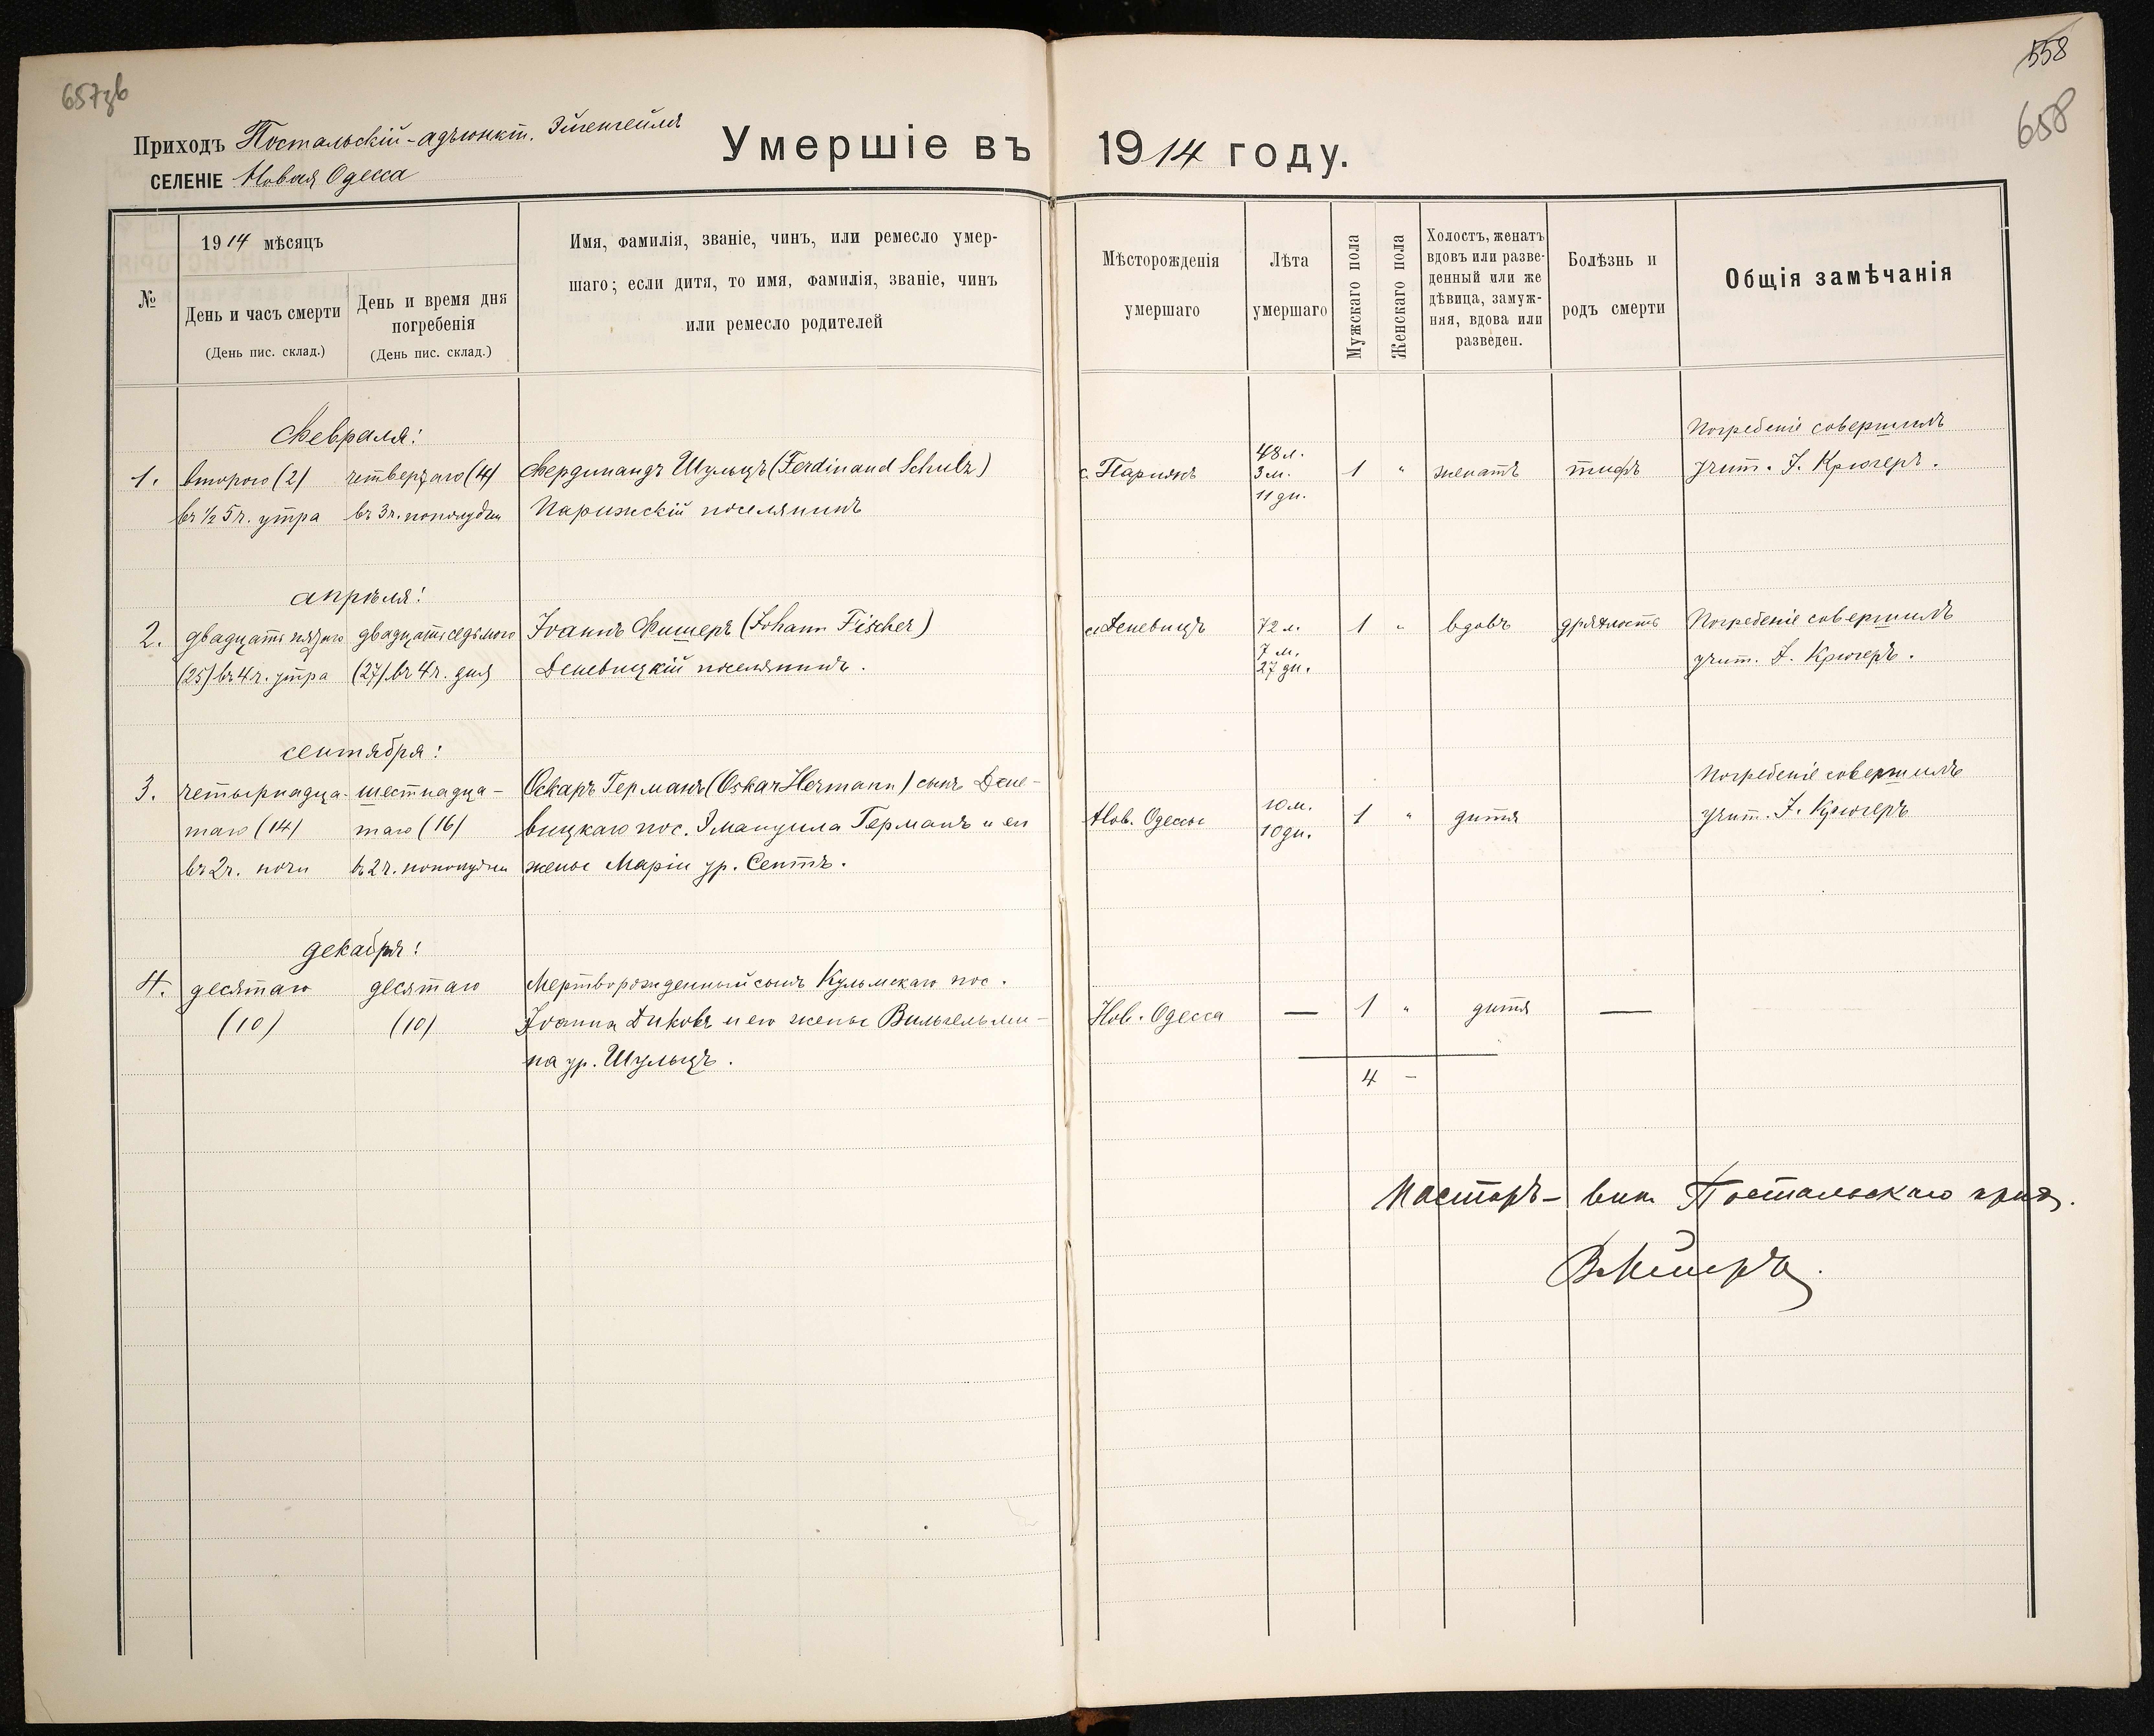 657зв
558
658
Приходъ Постальскiй-адъюнкт. Эйгенгеймъ
СЕЛЕНIЕ Новая Одесса
Умершiе въ 1914 году.
№
1914 мѣсяцъ
День и часъ смерти
(День пис. склад.)
День и время дня
погребенiя
(День пис. склад.)
Имя, фамилiя, званiе, чинъ, или ремесло умер-
шаго; если дитя, то имя, фамилiя, званiе, чинъ
или ремесло родителей
Мѣсторожденiя
умершаго
Лѣта
умершаго
Мужскаго пола
Женскаго пола
Холостъ, женатъ
вдовъ или разве-
денный или же
дѣвица, замуж-
няя, вдова или
разведен.
Болѣзнь и
родъ смерти
Общiя замѣчанiя
Февраля:
1. второго (2) четвертаго (4) Фердинандъ Шульцъ (Ferdinand Schulz)
въ ½ 5 ч. утра въ 3 ч. пополудни Парижскiй поселянинъ
с. Парижъ
48 л.
3 м.
11 дн.
1 " женатъ тифъ
Погребенiе совершилъ
учит. Ф. Крюгеръ.
апрѣля:
2. двадцать пятого двадцать седьмого Iоаннъ Фишеръ (Johann Fischer)
(25) въ 4 ч. утра (27) въ 4 ч. дня Деневицкiй поселянинъ.
с. Деневицъ
72 л.
7 м.
27 дн.
1 " вдовъ дряхлость
Погребенiе совершилъ
учит. Ф. Крюгеръ.
сентября:
3. четырнадца- шестнадца- Оскаръ Германъ (Oskar Hermann) сынъ Дене-
таго (14) таго (16) вицкаго пос. Эмануила Германъ и ея
въ 2 ч. ночи въ 2 ч. пополудни жены Марiи ур. Сентъ.
Нов. Одессы
10 м.
10 дн.
1 " дитя
Погребенiе совершилъ
учит. Ф. Крюгеръ
декабря:
4. десятаго десятаго Мертворожденный сынъ Кульмскаго пос.
(10) (10) Iоанна Диковъ и его жены Вильгельми-
на ур. Шульцъ.
Нов. Одесса — 1 " дитя —
4 -
Пасторъ- вик. Постальскаго прих.
В. Мейеръ.